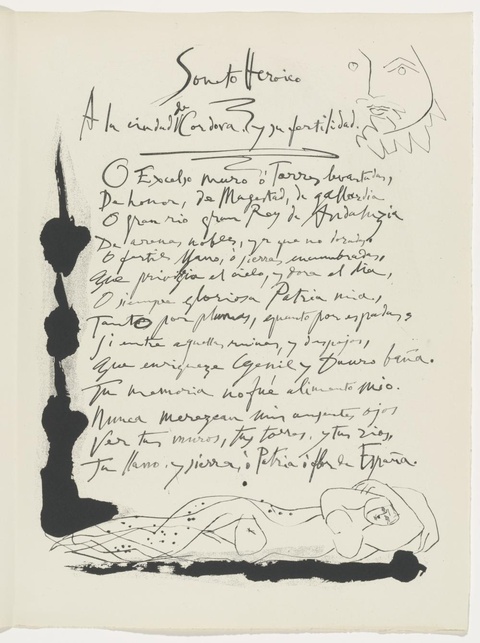 Soneto Heroico
A la ciudad de Cordova. y su fertilidad.
O Excelso muro ó Torres levantadas,
De honor, de Magestad, de gallardia
O gran rio gran Rey de Andaluzia
De arenas nobles, ya que no doradas
O fertil llano, ó sierras encumbradas,
Que privilegia el cielo, y dora el dia,
O siempre gloriosa Patria mia,
Tanto por plumas, quanto por espadas,
Si entre aquellas ruinas, y despojos,
Que enriqueze Genil y Dauro baña.
Tu memoria no fué alimento mio.
Nunca merezcan mis ausentes ojos
Ver tus muros, tus torres, y tus rios,
Tu llano. y sierra, ó Patria ó flor de España.